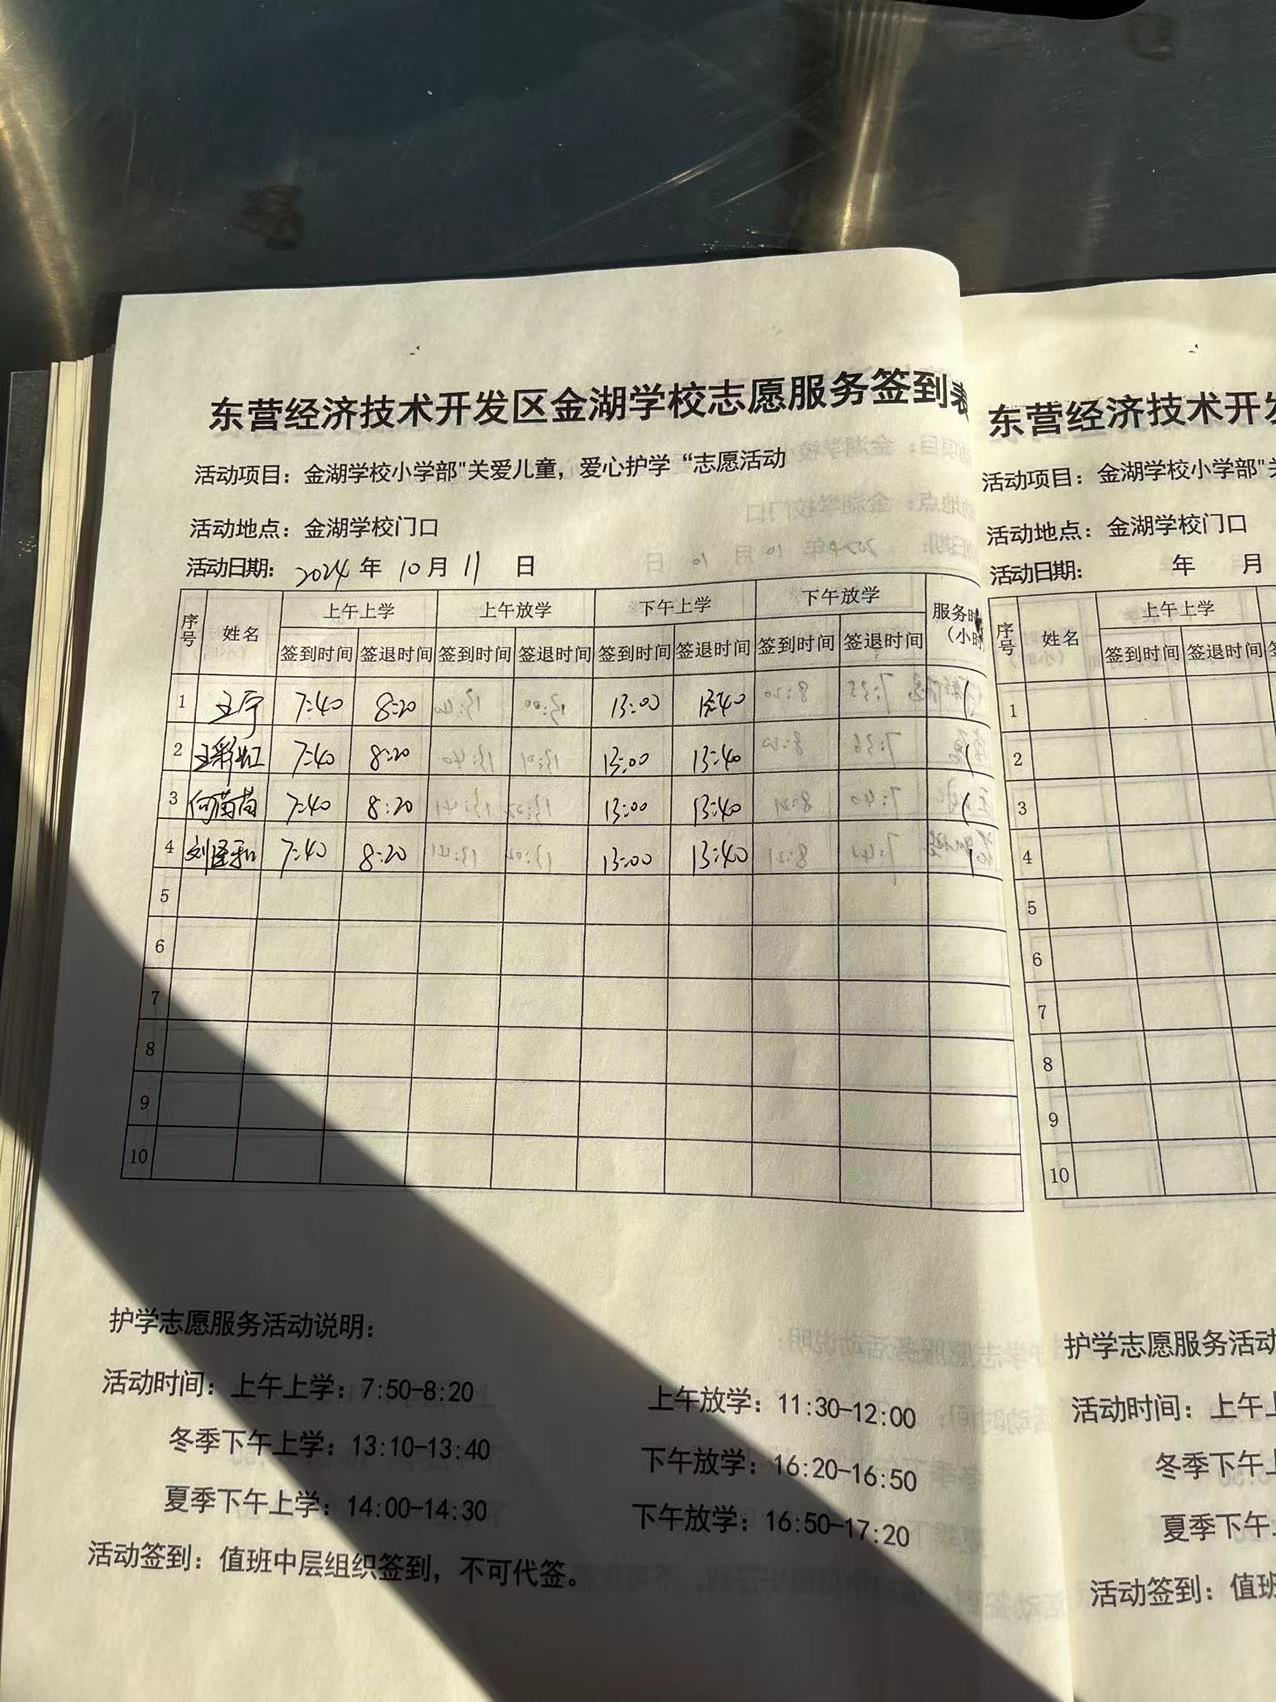 东营经济技术开发区金湖学校志愿服务签到表
活动项目：金湖学校小学部"关爱儿童，爱心护学“志愿活动
活动地点：金湖学校门口
活动日期： 2024 年 10 月 11 日
序号 姓名 上午上学 上午放学 下午上学 下午放学 服务时
（小时
签到时间 签退时间 签到时间 签退时间 签到时间 签退时间 签到时间 签退时间
1 王宁 7:40 8:20 13:00 13:40 1
2 王彩虹 7:40 8:20 13:00 13:40 1
3 何苗苗 7:40 8:20 13:00 13:40 1
4 7:40 8:20 13:00 13:40 1
5
6
7
8
9
10
护学志愿服务活动说明：
活动时间：上午上学：7:50-8:20 上午放学：11:30-12:00
冬季下午上学：13:10-13:40 下午放学：16:20-16:50
夏季下午上学：14:00-14:30 下午放学：16:50-17:20
活动签到：值班中层组织签到，不可代签。
东营经济技术开发
活动项目：金湖学校小学部"关
活动地点：金湖学校门口
活动日期： 年 月
序号 姓名 上午上学
签到时间 签退时间
1
2
3
4
5
6
7
8
9
10
护学志愿服务活动
活动时间：上午上
冬季下午上
夏季下午
活动签到：值班